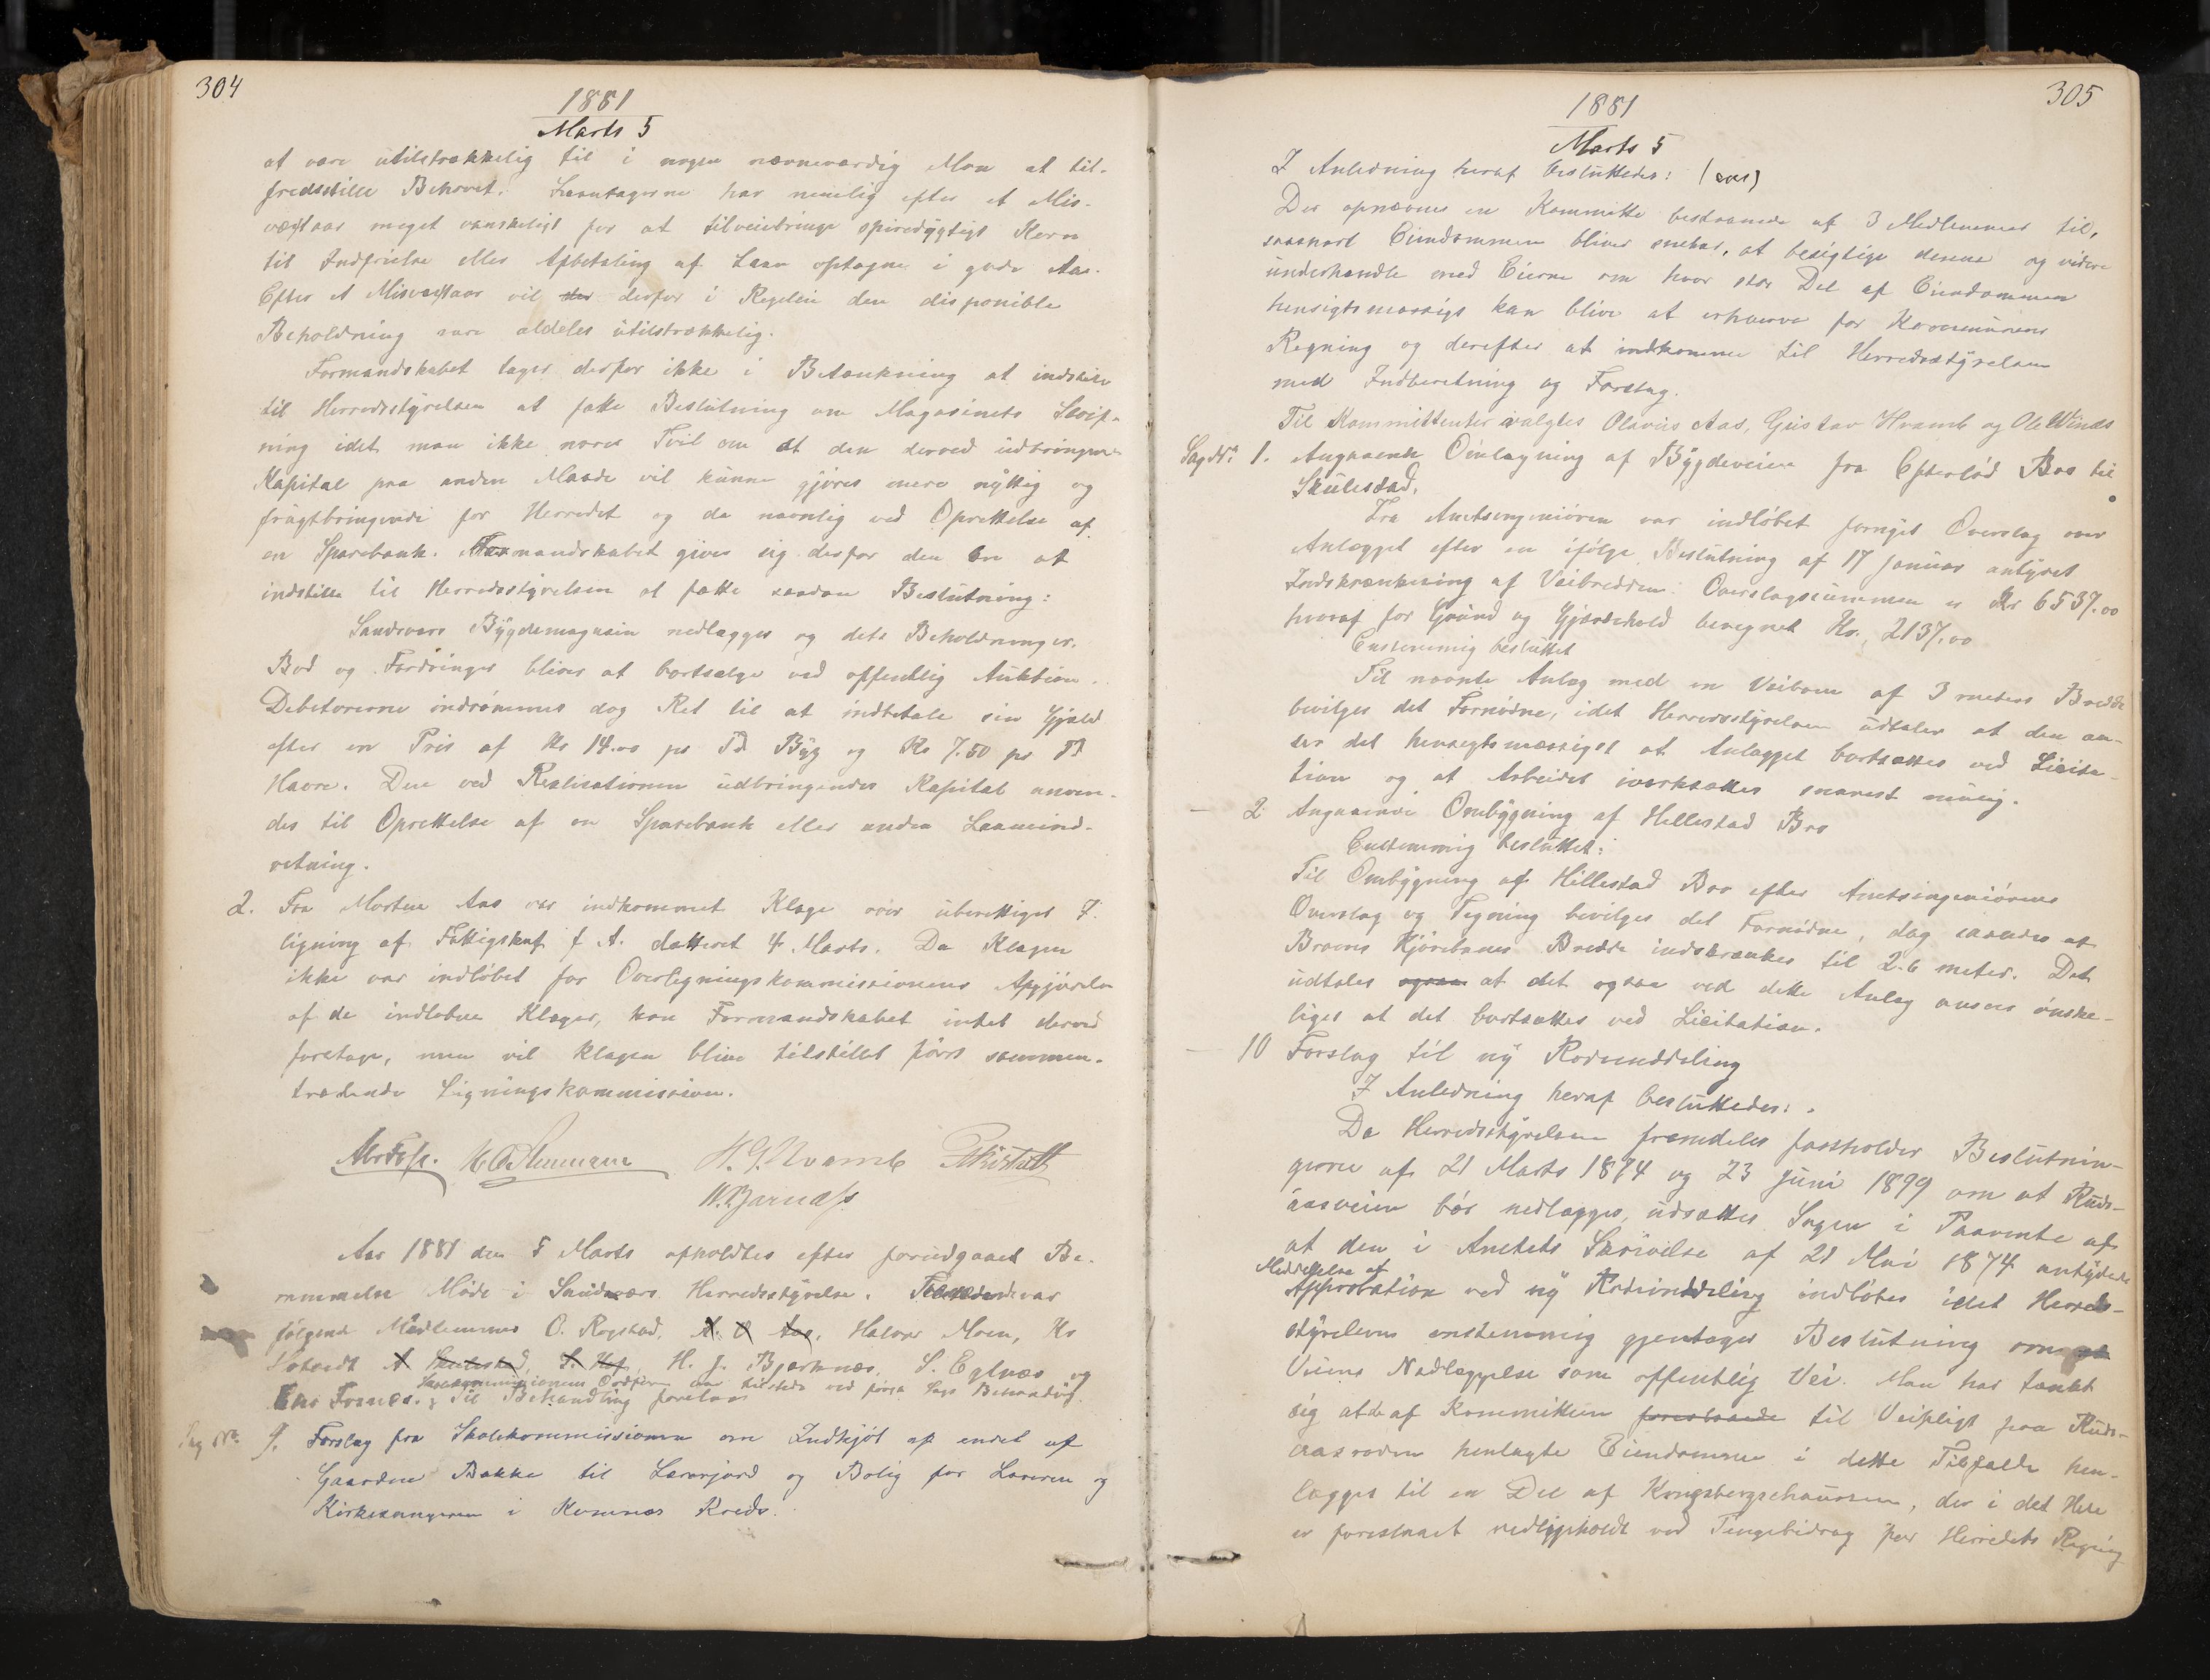 304
1881
Marts 5
at være utilstrækkelig til i nogen nævneværdig Mon at til-
fredsstille Behovet. Laantagerne har nemlig efter et Mis-
væxtaar meget vanskeligt for at tilveiebringe spiredygtigt Korn
til Indfrielse eller Afbetaling af Laan optagne i gode Aar.
Efter et Misvæxtaar vil der derfor i Regelen den disponible
Beholdning være aldeles utilstrækkelig.
Formandskabet tager derfor ikke i Betænkning at indstille
til Herredsstyrelsen at fatte Beslutning om Magasinets Sløif-
ning idet man ikke nærer Tvil om at den derved udbringende
Kapital paa anden Maade vil kunne gjøres mere nyttig og
frugtbringende for Herredet og da navnlig ved Oprettelse af
en Sparebank. Formandskabet giver sig derfor den Ære at
indstille til Herredsstyrelsen at fatte saadan Beslutning:
Sandsværs Bygdemagasin nedlægges og dets Beholdninger,
Bod og Fordringer bliver at bortsælge ved offentlig Auktion.
Debitorerne indrømmes dog Ret til at indbetale sin Gjæld
efter en Pris af Kr 14.00 pr Td Byg og Kr 7.50 pr Td
Havre. Den ved Realisationen udbringendes Kapital anven-
des til Oprettelse af en Sparebank eller anden Laaneind-
retning.
2. Fra Morten Aas var indkommet Klage over uberettiget I-
ligning af Fattigskat f. A. datteret 4 Marts. Da Klagen
ikke var indløbet før Overligningskommissionens Afgjørelse
af de indløbne Klager, kan Formandskabet intet derved
foretage, men vil Klagen blive tilstillet først sammen-
trædende Ligningskommission.
H. G. Hvamb
Aar 1881 den 5 Marts afholdtes efter forudgaaet Be-
rammelse Møde i Sandsværs Herredsstyrelse. Tilstede var
følgende Medlemmer O. Rogstad, A. O Aas, Halvor Moen, Kr
A Skulestad, S. Hof, H. J. Bjørknes, S. Eglnæs og
Skolekommissionens Ordfører var tilstede ved første Sags Behandling.
Fosnes. Til Behandling foretoes
Sag No. 9. Forslag fra Skolekommissionen om Indkjøb af endel af
Gaarden Bakke til Lærerjord og Bolig for Læreren og
Kirkesangeren i Komnes Kreds.
305
1881
Marts 5
I Anledning heraf besluttedes: (ens)
Der opnævnes en Kommitte bestaaende af 3 Medlemmer til,
saasnart Eiendommen bliver snebar, at besigtige denne og videre
underhandle med Eierne om hvor stor Del af Eiendommen
hensigtsmæssigt kan blive at erhverve for Kommunens
Regning og derefter at indkomme til Herredsstyrelsen
med Indberetning og Forslag.
Til Kommittenter valgtes Olavus Aas, Gustav Hvamb og Ole Winæs
Sag No. 1. Angaaende Omlægning af Bygdeveien fra Efteløt Bro til
Skulestad.
Fra Amtsingeniøren var indløbet fornyet Overslag over
Anlægget efter en ifølge Beslutning af 17 Januar antydet
Indskrænkning af Veibredden. Overslagssummen er Kr 6537.00
hvoraf for Grund og Gjærdehold beregnet Kr. 2137.00
Enstemmig besluttet
Til nævnte Anlæg med en Veibane af 3 meters Bredde
bevilges det Fornødne, idet Herredsstyrelsen udtaler at den an-
ser det hensigtsmæssigst at Anlægget bortsættes ved Licita-
tion og at Arbeidet iværksættes snarest mulig.
— 2 Angaaende Ombygning af Hellestad Bro
Enstemmig besluttet:
Til Ombygning af Hillestad Bro efter Amtsingeniørens
Overslag og Tegning bevilges det Fornødne, dog saaledes at
Broens Kjørebanes Bredde indskrænkes til 2.6 meter. Det
udtales ogsaa at det ogsaa ved dette Anlæg ansees ønske-
ligst at det bortsættes ved Licitation.
— 10 Forslag til ny Rodeinddeling
I Anledning heraf besluttedes:
Da Herredsstyrelsen fremdeles fastholder Beslutnin-
gerne af 21 Marts 1874 og 23 Juni 1899 om at Ruds-
aasveien bør nedlægges, udsættes Sagen i Paavente af
at den i Amtets Skrivelse af 21 Mai 1874 antydede
Meddelelse af
Approbation ved ny Rodeinddeling indløber idet Herreds-
styrelsen enstemmig gjentager Beslutning om
Veiens Nedlæggelse som offentlig Vei. Man har tænkt
sig at de af Kommitteen foreslaaede til Veipligt paa Ruds-
aasroden henlagte Eiendomme i dette Tilfælde hen-
lægges til en Del af Kongsbergschausseen, der i det Hele
er foreslaaet vedligeholdt ved Pengebidrag for Herredets Regning